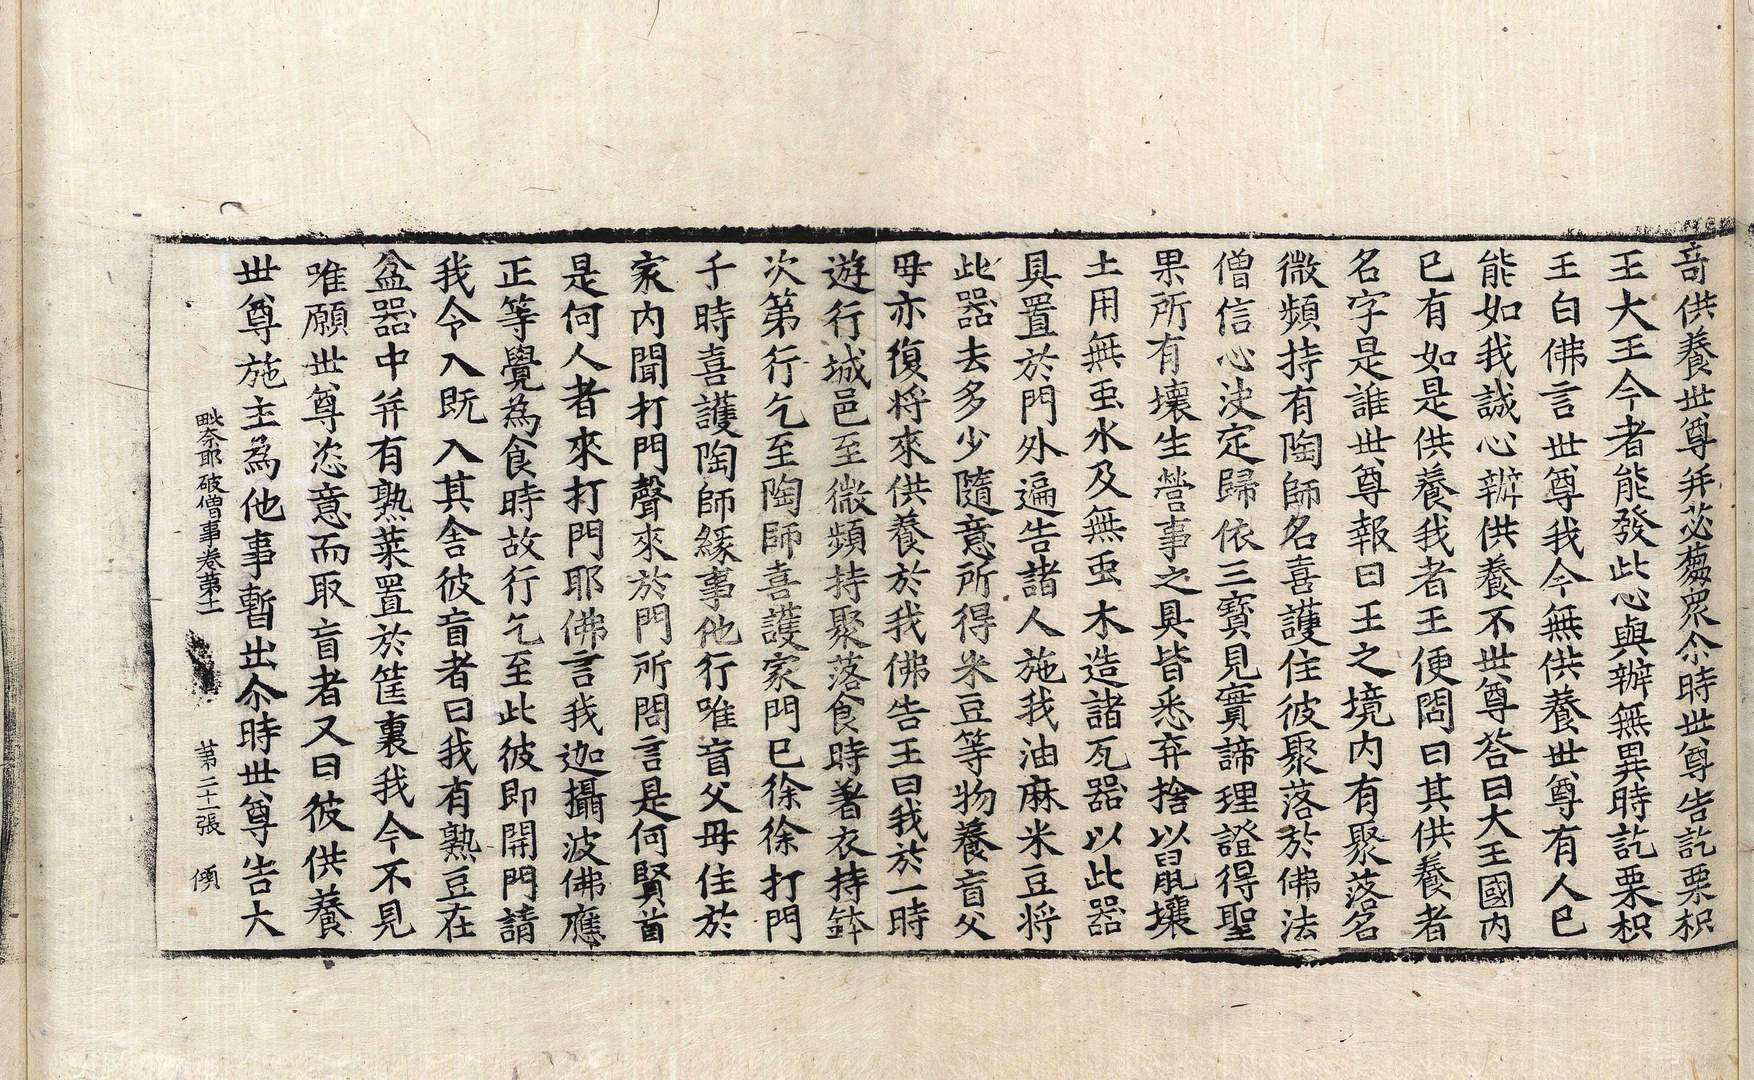 音供養世尊并苾蒭衆尒時世尊告訖栗枳
王大王今者能發此心與辦無異時訖栗枳
王白佛言世尊我今無供養世尊有人已
能如我誠心辦供養不世尊答曰大王國內
已有如是供養我者王便問曰其供養者
名字是誰世尊報曰王之境內有聚落名
微頻持有陶師名喜護住彼聚落於佛法
僧信心決定歸依三寶見實諦理證得聖
果所有壞生營事之具皆悉弃捨以鼠壤
土用無虫水及無虫木造諸瓦器以此器
具置於門外遍告諸人施我油麻米豆將
此器去多少隨意所得米豆等物養盲父
母亦復將來供養於我佛告王曰我於一時
遊行城邑至微頻持聚落食時著衣持鉢
次第行乞至陶師喜護家門已徐徐打門
于時喜護陶師緣事他行唯盲父母住於
家內聞打門聲來於門所問言是何賢首
是何人者來打門耶佛言我迦攝波佛應
正等覺為食時故行乞至此彼即開門請
我令入既入其舍彼盲者曰我有熟豆在
盆器中并有熟菜置於筐裏我今不見
唯願世尊恣意而取盲者又曰彼供養
世尊施主為他事暫出尒時世尊告大
毗奈耶破僧事卷第十一 第二十一張 傾